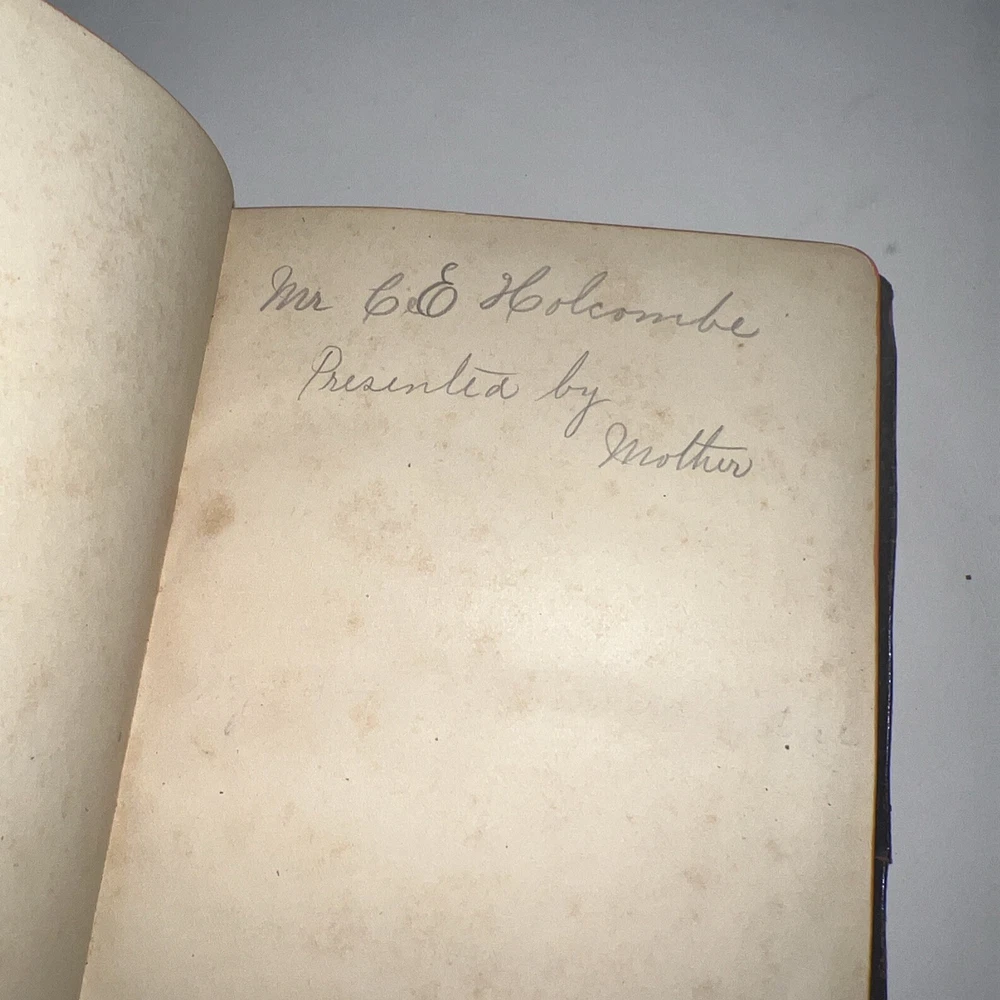 Mr C.E Holcombe
Presented by
Mother